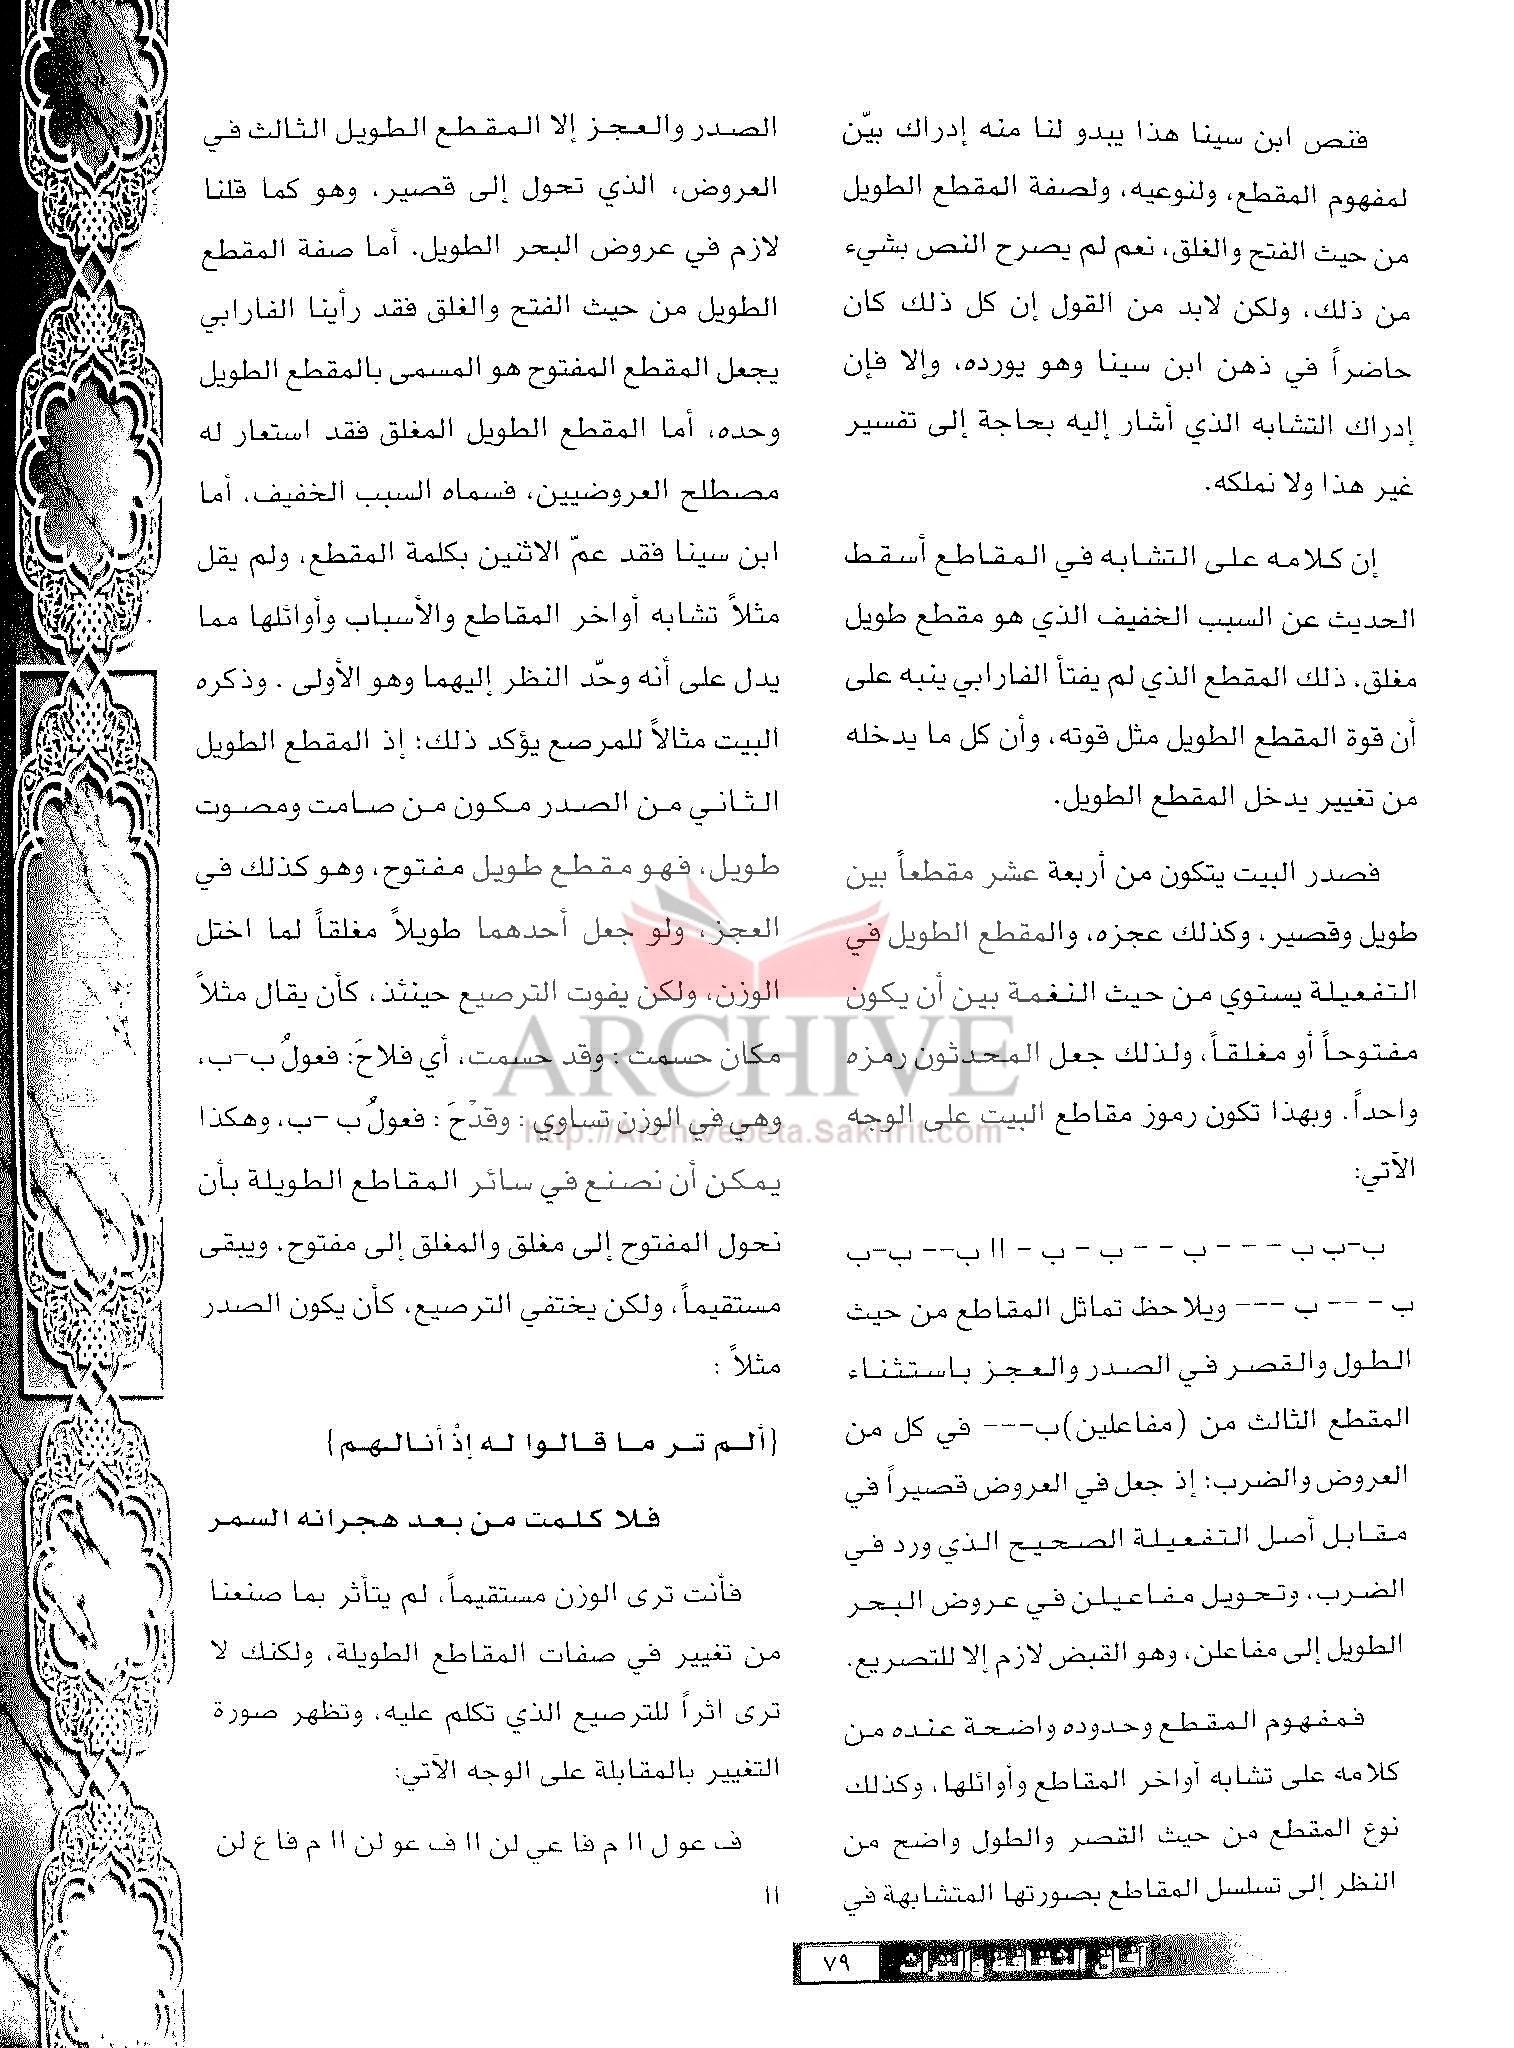 فنص ابن سينا هذا يبدو لنا منه إدراك بيّن
لمفهوم المقطع، ولنوعيه، ولصفة المقطع الطويل
من حيث الفتح والغلق، نعم لم يصرح النص بشيء
من ذلك، ولكن لابد من القول إن كل ذلك كان
حاضراً في ذهن ابن سينا وهو يورده، وإلا فإن
إدراك التشابه الذي أشار إليه بحاجة إلى تفسير
غير هذا ولا نملكه.
إن كلامه على التشابه في المقاطع أسقط
الحديث عن السبب الخفيف الذي هو مقطع طويل
مغلق، ذلك المقطع الذي لم يفتأ الفارابي ينبه على
أن قوة المقطع الطويل مثل قوته، وأن كل ما يدخله
من تغيير يدخل المقطع الطويل.
فصدر البيت يتكون من أربعة عشر مقطعاً بين
طويل وقصير، وكذلك عجزه، والمقطع الطويل في
التفعيلة يستوي من حيث النغمة بين أن يكون
مفتوحاً أو مغلقاً، ولذلك جعل المحدثون رمزه
واحداً. وبهذا تكون رموز مقاطع البيت على الوجه
الآتي:
ب-ب ب - - - ب - - ب - ب - اا ب-- ب-ب
ب - -- ب --- ويلاحظ تماثل المقاطع من حيث
الطول والقصر في الصدر والعجز باستثناء
المقطع الثالث من (مفاعلين)ب--- في كل من
العروض والضرب؛ إذ جعل في العروض قصيراً في
مقابل أصل التفعيلة الصحيح الذي ورد في
الضرب، وتحويل مفاعيلن في عروض البحر
الطويل إلى مفاعلن، وهو القبض لازم إلا للتصريع.
فمفهوم المقطع وحدوده واضحة عنده من
كلامه على تشابه أواخر المقاطع وأوائلها، وكذلك
نوع المقطع من حيث القصر والطول واضح من
النظر إلى تسلسل المقاطع بصورتها المتشابهة في
الصدر والعجز إلا المقطع الطويل الثالث في
العروض، الذي تحول إلى قصير، وهو كما قلنا
لازم في عروض البحر الطويل. أما صفة المقطع
الطويل من حيث الفتح والغلق فقد رأينا الفارابي
يجعل المقطع المفتوح هو المسمى بالمقطع الطويل
وحده، أما المقطع الطويل المغلق فقد استعار له
مصطلح العروضيين، فسماه السبب الخفيف، أما
ابن سينا فقد عمّ الاثنين بكلمة المقطع، ولم يقل
مثلاً تشابه أواخر المقاطع والأسباب وأوائلها مما
يدل على أنه وحّد النظر إليهما وهو الأولى. وذكره
البيت مثالاً للمرصع يؤكد ذلك؛ إذ المقطع الطويل
الثاني من الصدر مكون من صامت ومصوت
طويل، فهو مقطع طويل مفتوح، وهو كذلك في
العجز، ولو جعل أحدهما طويلاً مغلقاً لما اختل
الوزن، ولكن يفوت الترصيع حينئذ، كأن يقال مثلاً
مكان حسمت : وقد حسمت، أي فلاحَ: فعولُ ب-ب،
وهي في الوزن تساوي : وقدْحَ : فعولُ ب -ب، وهكذا
يمكن أن نصنع في سائر المقاطع الطويلة بأن
نحول المفتوح إلى مغلق والمغلق إلى مفتوح، ويبقى
مستقيماً، ولكن يختفي الترصيع، كأن يكون الصدر
مثلاً :
{ألم تر ما قالوا له إذْ أنالهم}
فلا كلمت من بعد هجرانه السمر
فأنت ترى الوزن مستقيماً، لم يتأثر بما صنعنا
من تغيير في صفات المقاطع الطويلة، ولكنك لا
ترى اثراً للترصيع الذي تكلم عليه، وتظهر صورة
التغيير بالمقابلة على الوجه الآتي:
ف عو ل اا م فا عي لن اا ف عو لن اا م فا ع لن
اا
ARCHIVE
http://Archivebeta.Sakhrit.com
آفاق الثقافة والتراث ٧٩